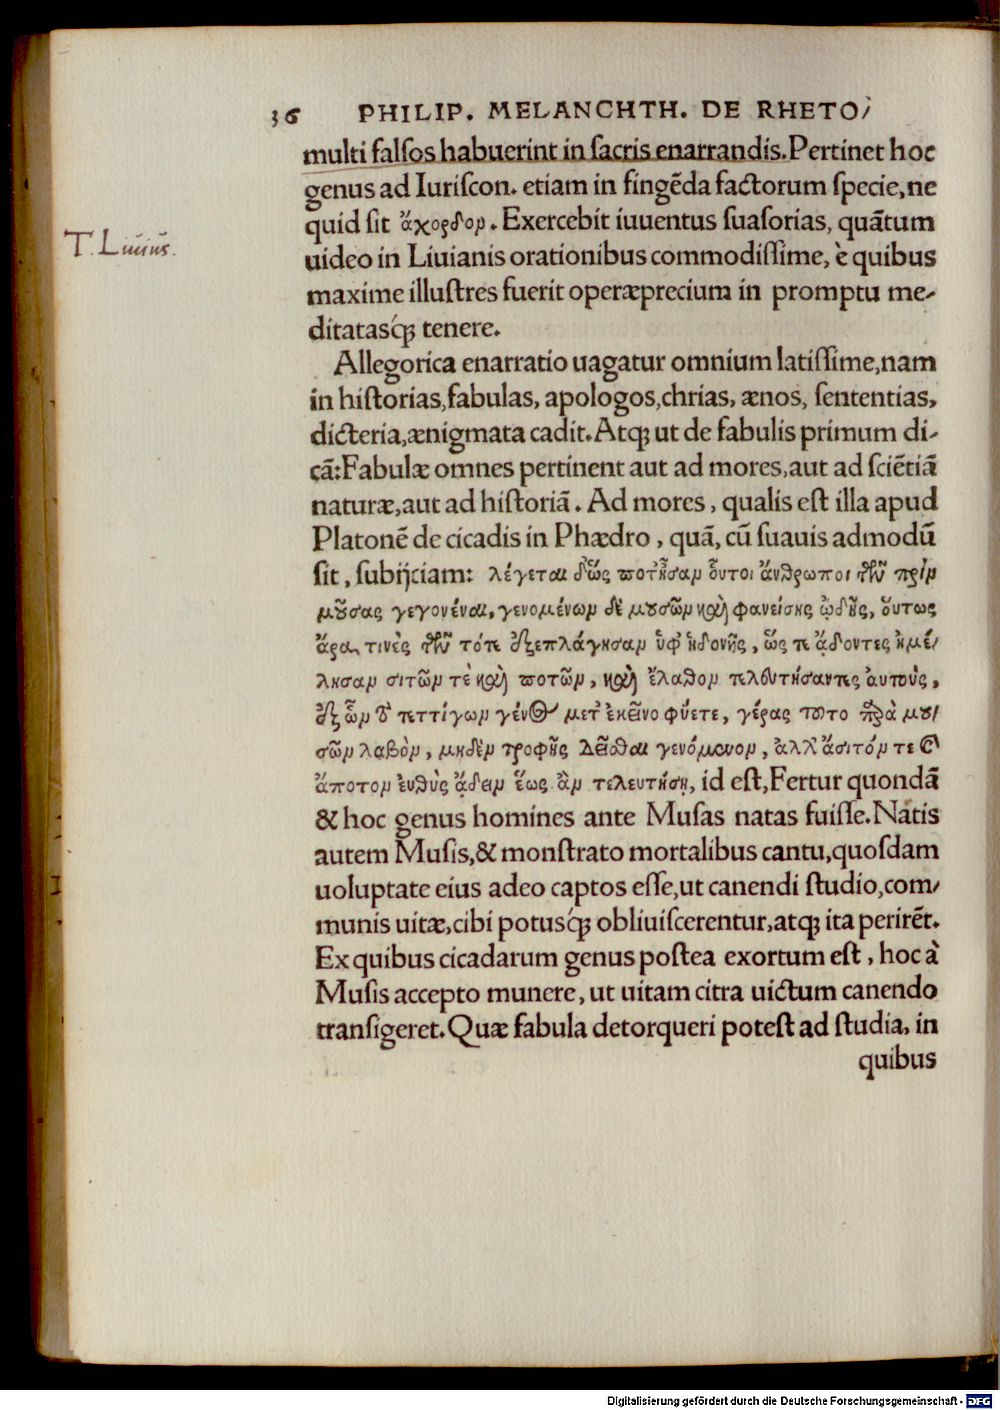 36 PHILIP. MELANCHTH. DE RHETO/
multi falſos habuerint in ſacris enarrandis. Pertinet hoc
genus ad Iuriſcon. etiam in fingẽda factorum ſpecie, ne
quid ſit ἄχορδορ. Exercebit iuuentus ſuaſorias, quãtum
T. Liuius.
uideo in Liuianis orationibus commodiſſime, è quibus
maxime illuſtres fuerit operæprecium in promptu me-
ditatasq́ꝫ tenere.
Allegorica enarratio uagatur omnium latiſſime, nam
in hiſtorias, fabulas, apologos, chrias, ænos, ſententias,
dicteria, ænigmata cadit. Atqꝫ ut de fabulis primum di-
cã: Fabulæ omnes pertinent aut ad mores, aut ad ſciẽtiã
naturæ, aut ad hiſtoriã. Ad mores, qualis eſt illa apud
Platonẽ de cicadis in Phædro, quã, cũ ſuauis admodũ
ſit, ſubijciam: λέγεται δ' ὥς ποτ' ἦσαμ οὗτοι ἄνθρωποι τῶν πρὶμ
μούσας γεγονέναι, γενομένωμ δὲ μουσῶμ καὶ φανείσης ᾠδῆς, οὕτως
ἄρα τινὲς τῶν τότε ἐξεπλάγησαμ ὑφ' ἡδονῆς, ὥς τε ᾄδοντες ἠμέ/
λησαμ σιτῶμ τὲ καὶ ποτῶμ, καὶ ἔλαθομ τελευτήσαντες ἁυτοὺς,
ἐξ ὧμ τὸ τεττίγωμ γένος μετ' ἐκεῖνο φύετε, γέρας τοῦτο παρὰ μου/
σῶμ λαβὸμ, μηδὲμ τροφῆς δεῖσθαι γενόμενομ, ἀλλ' ἄσιτόμ τε καὶ
ἄποτομ ἐυθὺς ᾄδειμ ἕως ἂμ τελευτήσῃ, id eſt, Fertur quondã
& hoc genus homines ante Muſas natas fuiſſe. Natis
autem Muſis, & monſtrato mortalibus cantu, quoſdam
uoluptate eius adeo captos eſſe, ut canendi ſtudio, com/
munis uitæ, cibi potusq́ꝫ obliuiſcerentur, atqꝫ ita perirẽt.
Ex quibus cicadarum genus poſtea exortum eſt, hoc à
Muſis accepto munere, ut uitam citra uictum canendo
tranſigeret. Quæ fabula detorqueri poteſt ad ſtudia, in
quibus
Digitalisierung gefördert durch die Deutsche Forschungsgemeinschaft - DFG